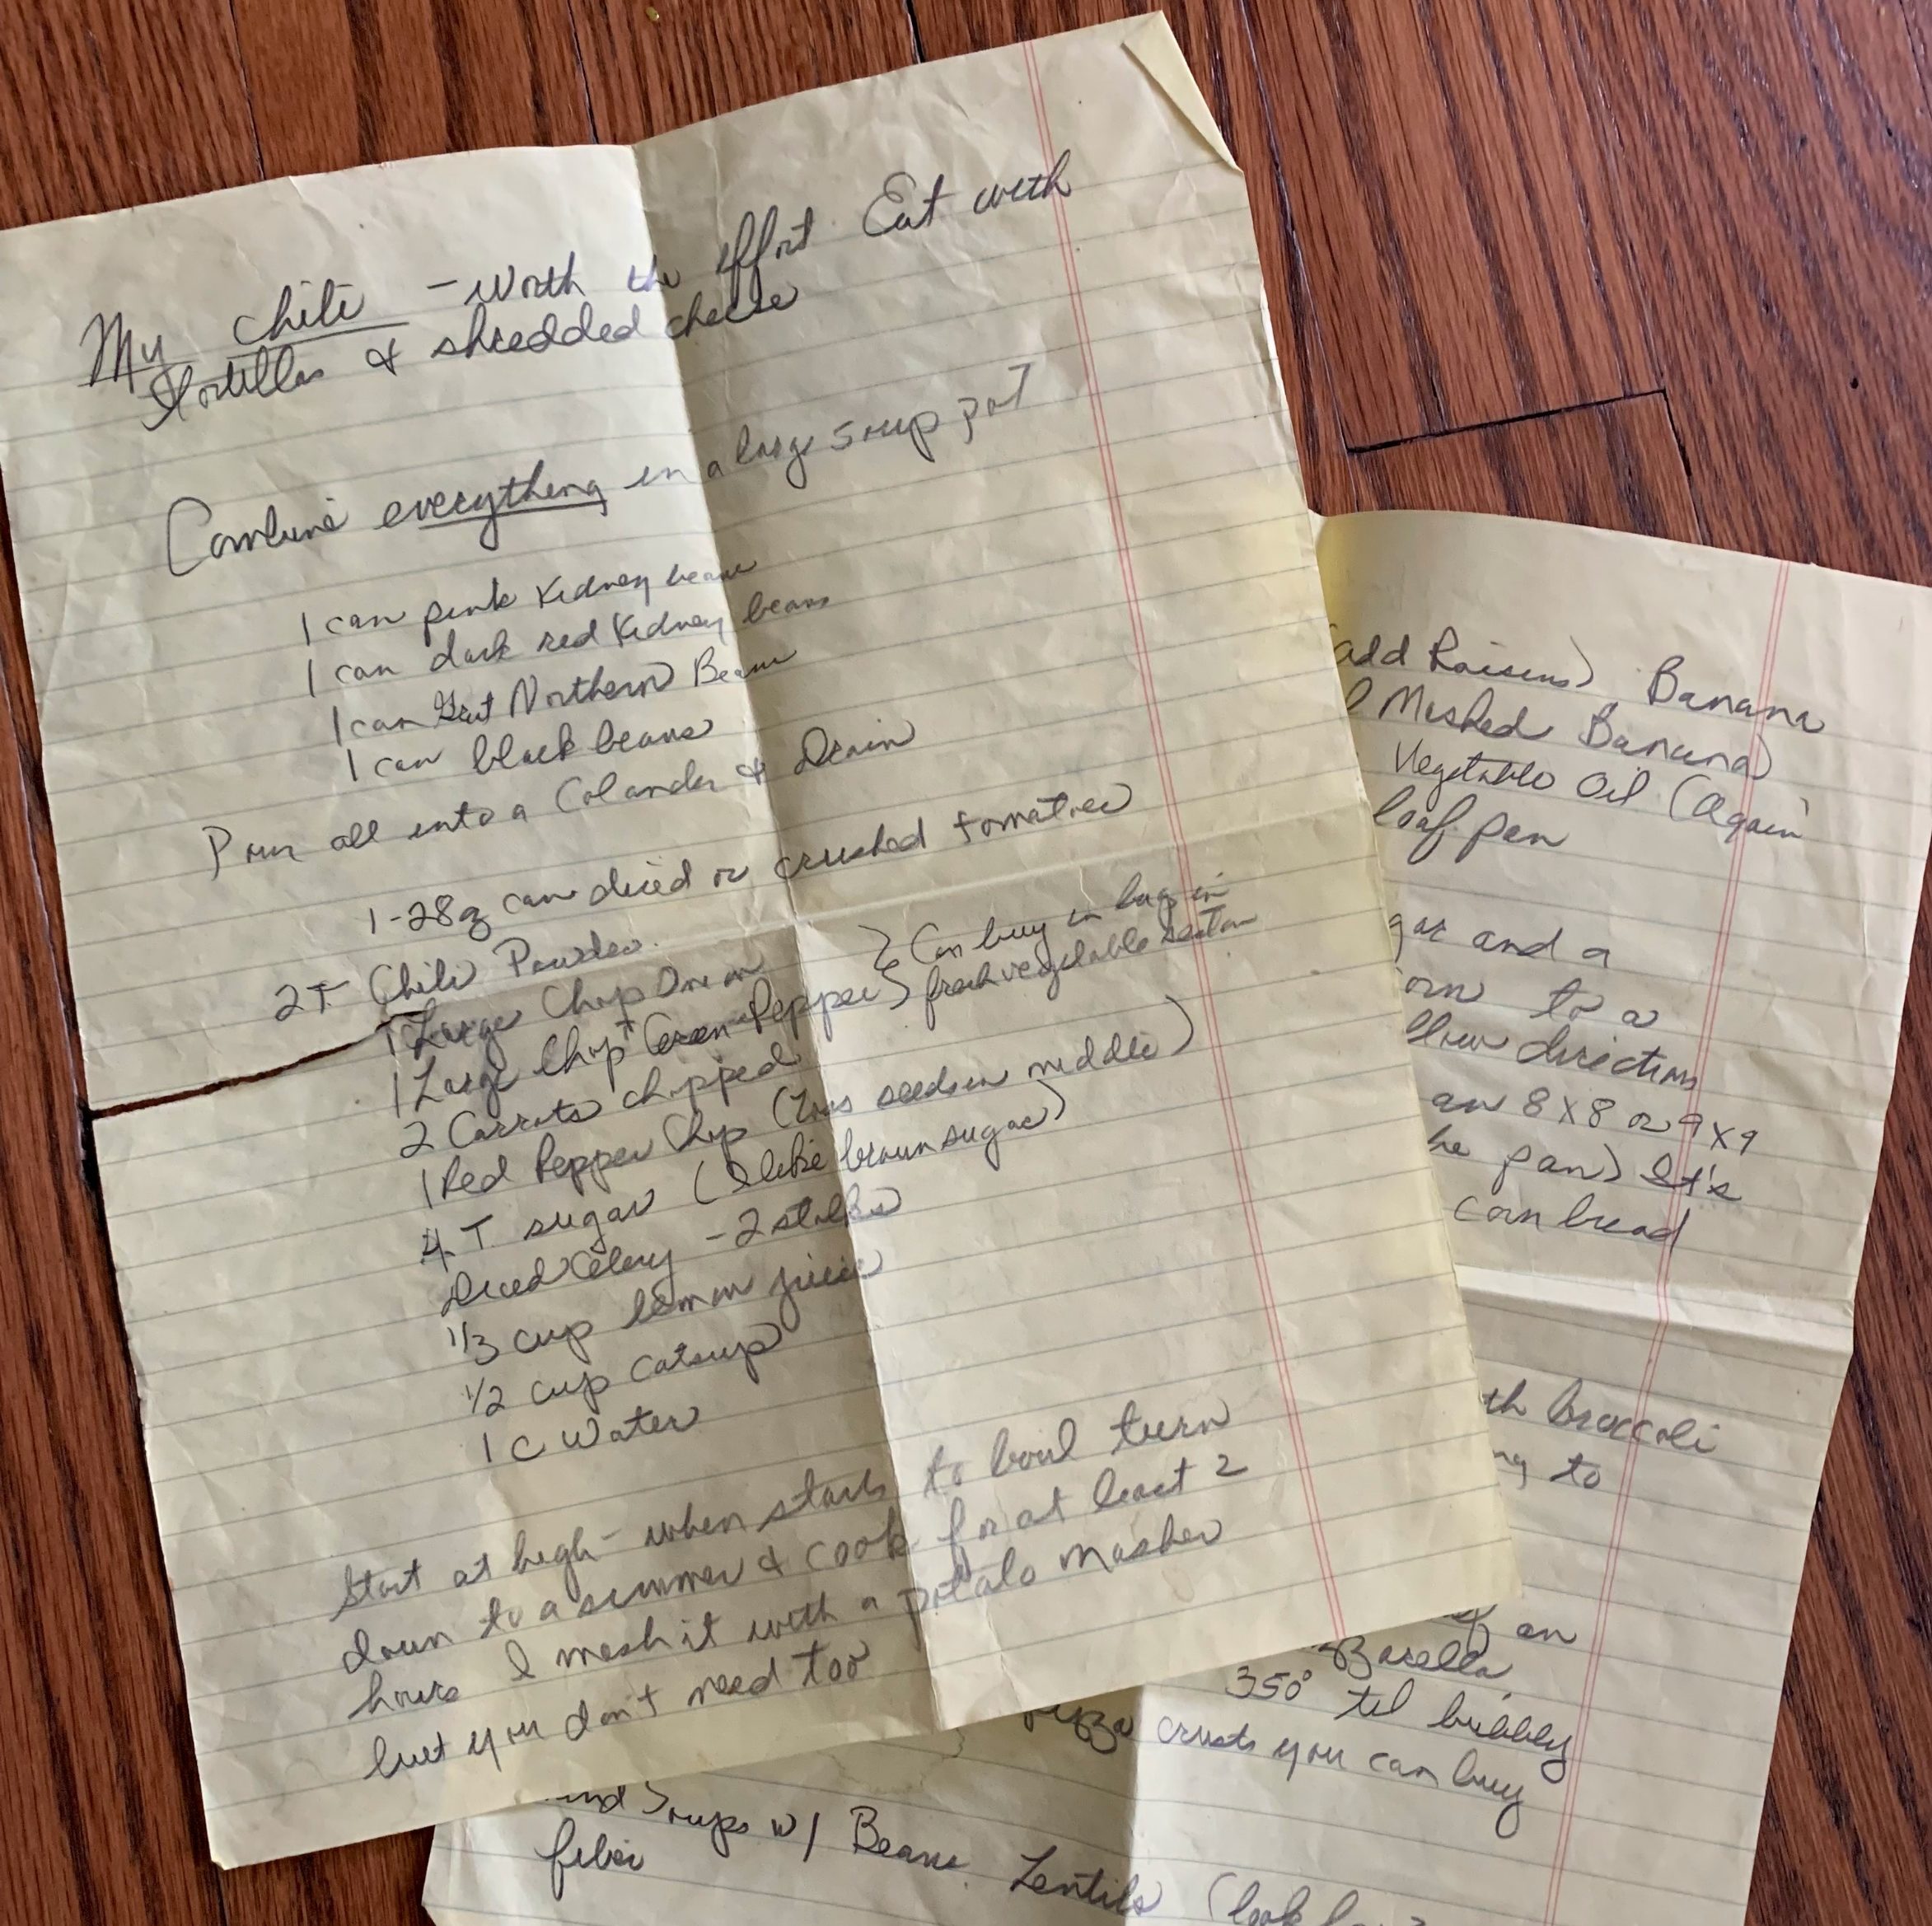 My Chili - Worth the effort Eat with
Tortillas & shredded cheese
Combine everything in a large soup pot
1 can pink Kidney beans
1 can dark red Kidney beans
1 can Great Northern Beans
1 can black beans
Pour all into a Colander & Drain
1-28oz can diced or crushed tomatoes
2T Chili Powder
1 Large Chop Onion } Can buy in bag in
1 Large Chop Green Pepper } fresh vegetable section
2 Carrots chopped
1 Red Pepper Chop (Toss seeds in middle)
4 T sugar (I like brown sugar)
Diced Celery - 2 stalks
1/3 cup lemon juice
1/2 cup catsup
1 C Water
Start at high - when starts to boil turn
down to a simmer & cook for at least 2
hours I mash it with a potato masher
but you don't need too
(add Raisins) Banana
Mashed Banana)
Vegetable Oil (Again
loaf pan
and a
to a
directions
an 8X8 or 9X9
pan) It's
corn bread
broccoli
to
on
350° til bubbly
pizza crusts you can buy
Soups w/ Beans. Lentils (look for
fiber